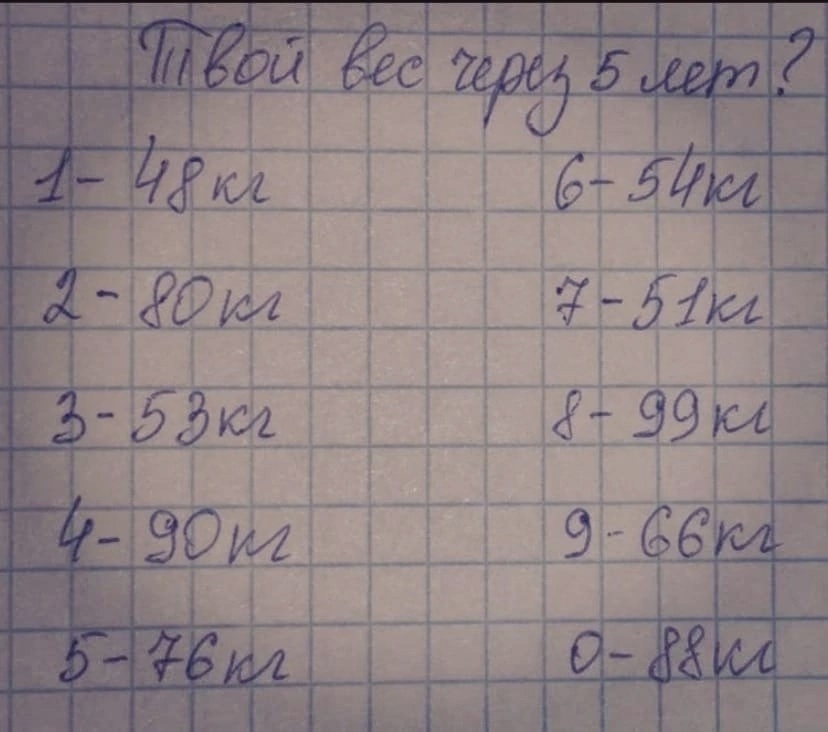 Твой вес через 5 лет?
1- 48кг 6- 54кг
2- 80кг 7- 51кг
3- 53кг 8- 99кг
4- 90кг 9- 66кг
5- 76кг 0- 88кг